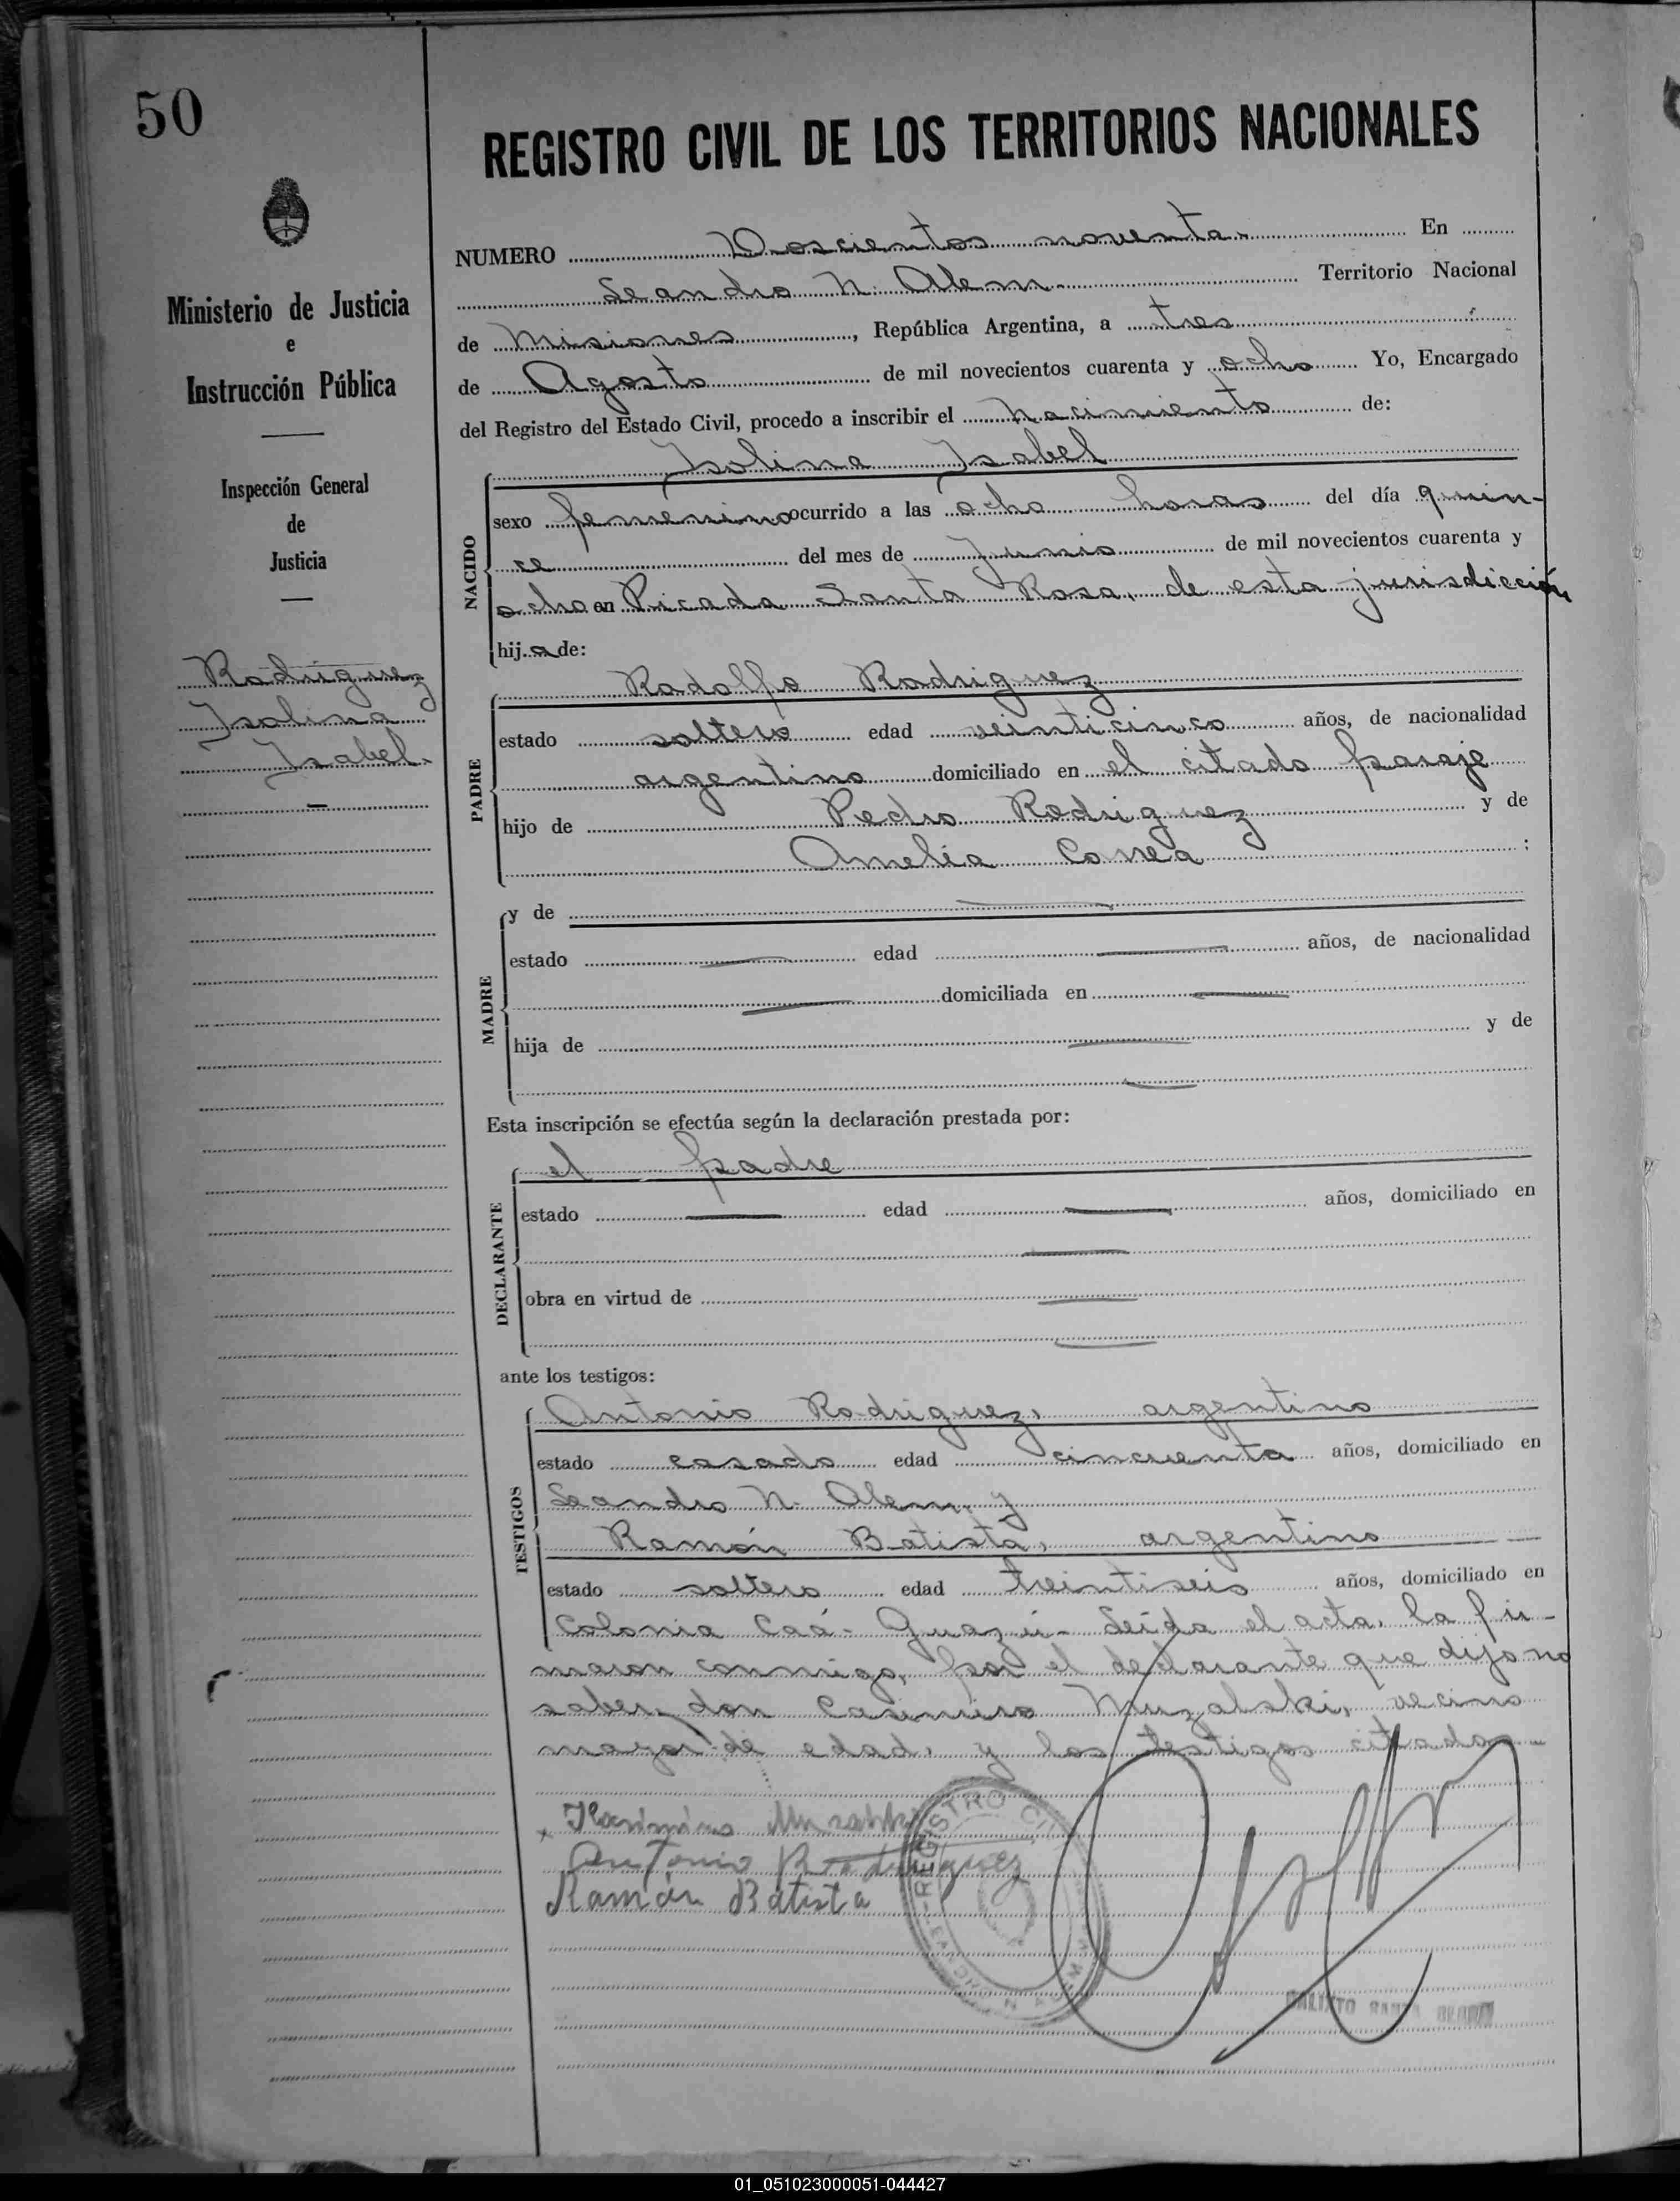 50
REGISTRO CIVIL DE LOS TERRITORIOS NACIONALES
Ministerio de Justicia
e
Instrucción Pública
Inspección General
de
Justicia
Rodriguez
Isolina
Isabel.
NUMERO Doscientos noventa. En
Leandro N. Alem. Territorio Nacional
de Misiones, República Argentina, a tres
de Agosto de mil novecientos cuarenta y ocho Yo, Encargado
del Registro del Estado Civil, procedo a inscribir el nacimiento de:
NACIDO
Isolina Isabel
sexo femenino ocurrido a las ocho horas del día quin-
ce del mes de Junio de mil novecientos cuarenta y
ocho en Picada Santa Rosa, de esta jurisdicción
hija de:
PADRE
Rodolfo Rodriguez
estado soltero edad veinticinco años, de nacionalidad
argentino domiciliado en el citado paraje
hijo de Pedro Rodriguez y de
Amelia Correa ;
MADRE
y de
estado edad años, de nacionalidad
domiciliada en
hija de y de
Esta inscripción se efectúa según la declaración prestada por:
DECLARANTE
el padre
estado edad años, domiciliado en
obra en virtud de
ante los testigos:
TESTIGOS
Antonio Rodriguez, argentino
estado casado edad cincuenta años, domiciliado en
Leandro N. Alem, y
Ramón Batista, argentino
estado soltero edad treintiseis años, domiciliado en
Colonia Caá-Guazú- Leída el acta, la fir-
maron conmigo, por el declarante que dijo no
saber, don Casimiro Muzalski, vecino
mayor de edad, y los testigos citados
Antonio Rodriguez
Ramón Batista
REGISTRO CIVIL
01_051023000051-044427